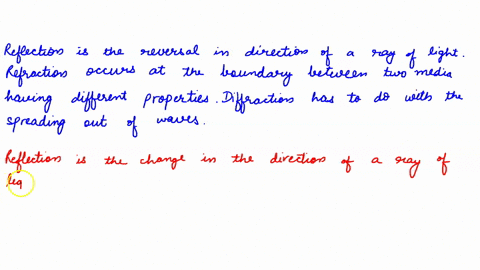 Reflection is the reversal in direction of a ray of light.
Refraction occurs at the boundary between two media
having different properties. Diffraction has to do with the
spreading out of waves.
Reflection is the change in the direction of a ray of